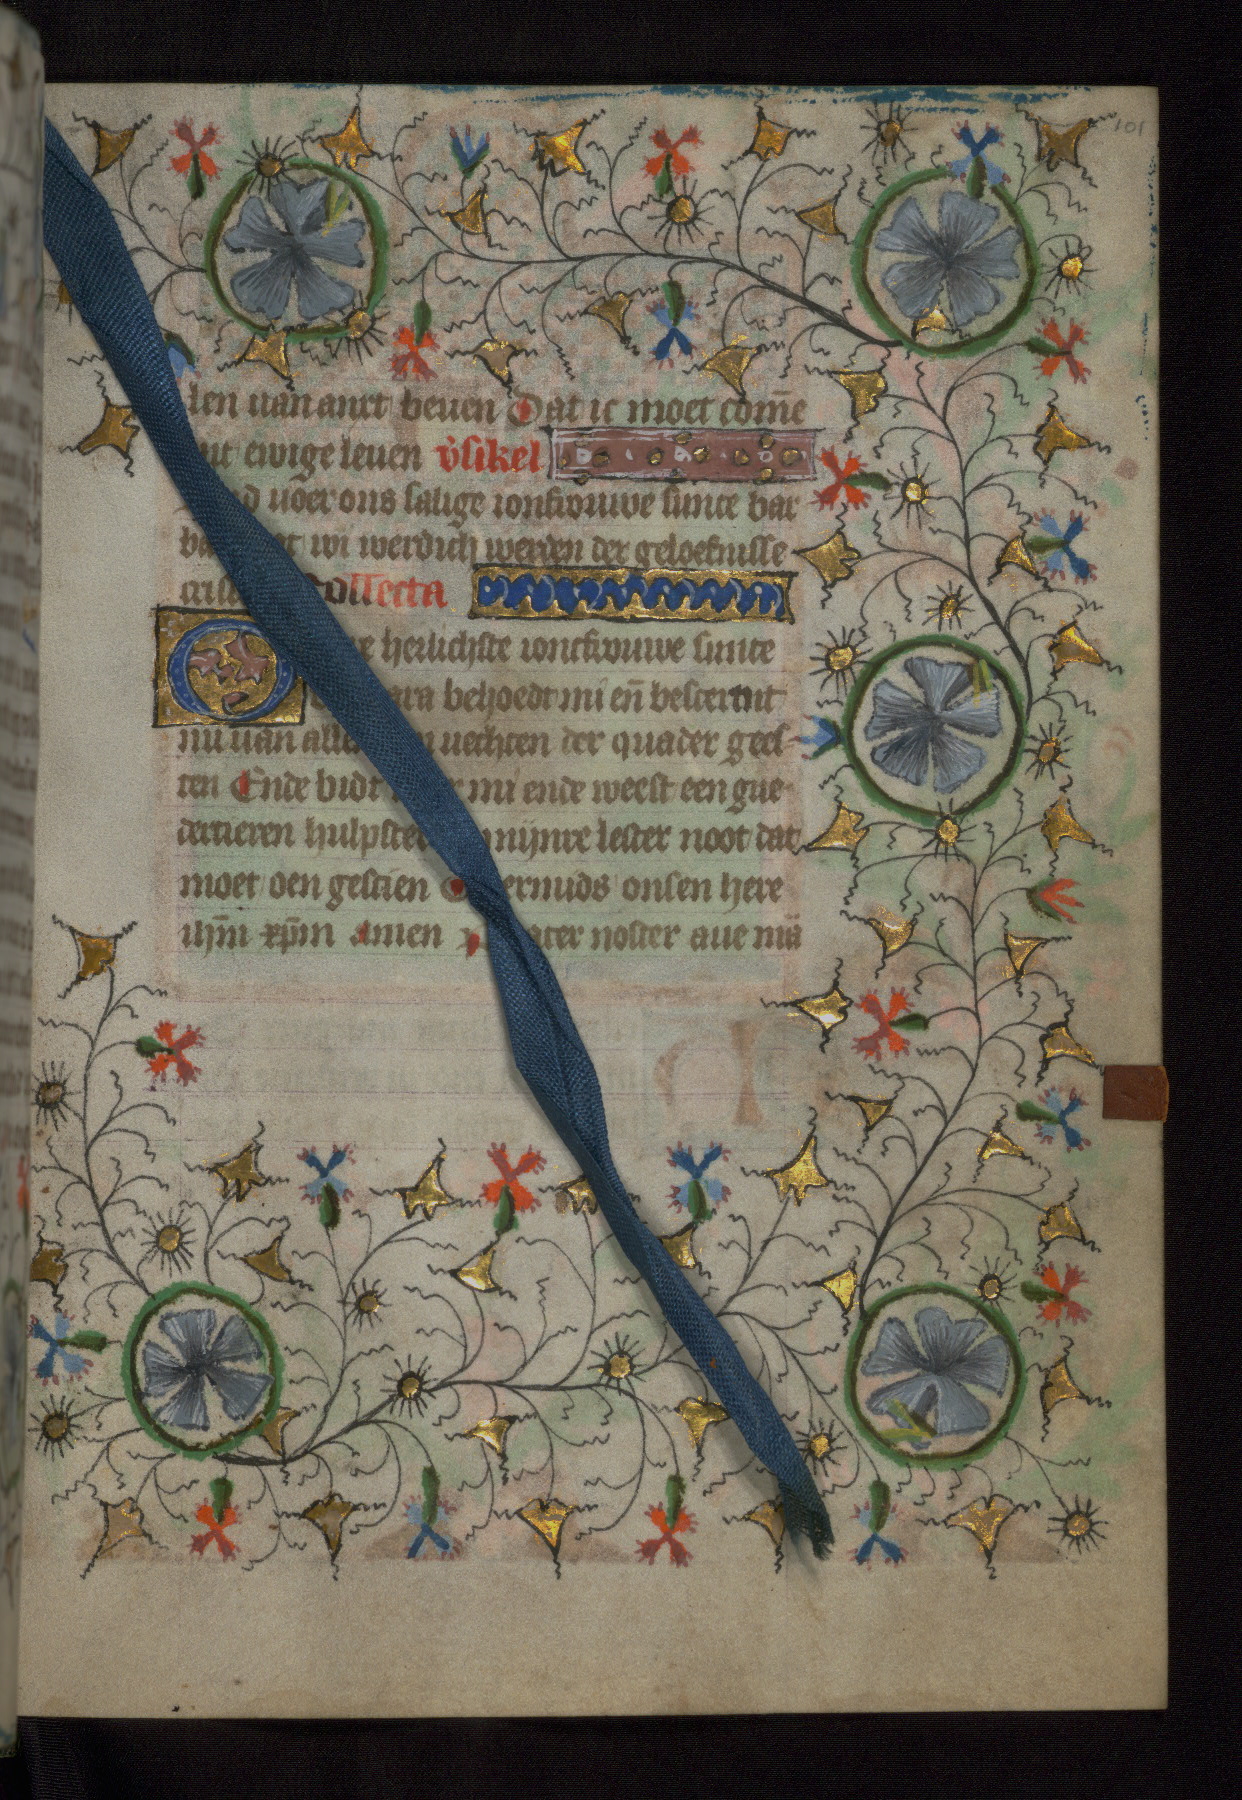 101
len uan anxt beuen Dat ic moet com̄e
ewige leuen v̓sikel
uoer ons salige ioncfrouwe sunte bar
wi werdich werden der geloefnisse
Collecta
herlichste ioncfrouwe sunte
behoedt mi en̄ bescermt
nu uan uechten der quader gees
ten Ende bidt mi ende weest een gue
dertieren hulpster mijnre lester noot dat
moet oen gescien ouermids onsen here
ihm̄ xpm̄ Amen pater noster aue mā